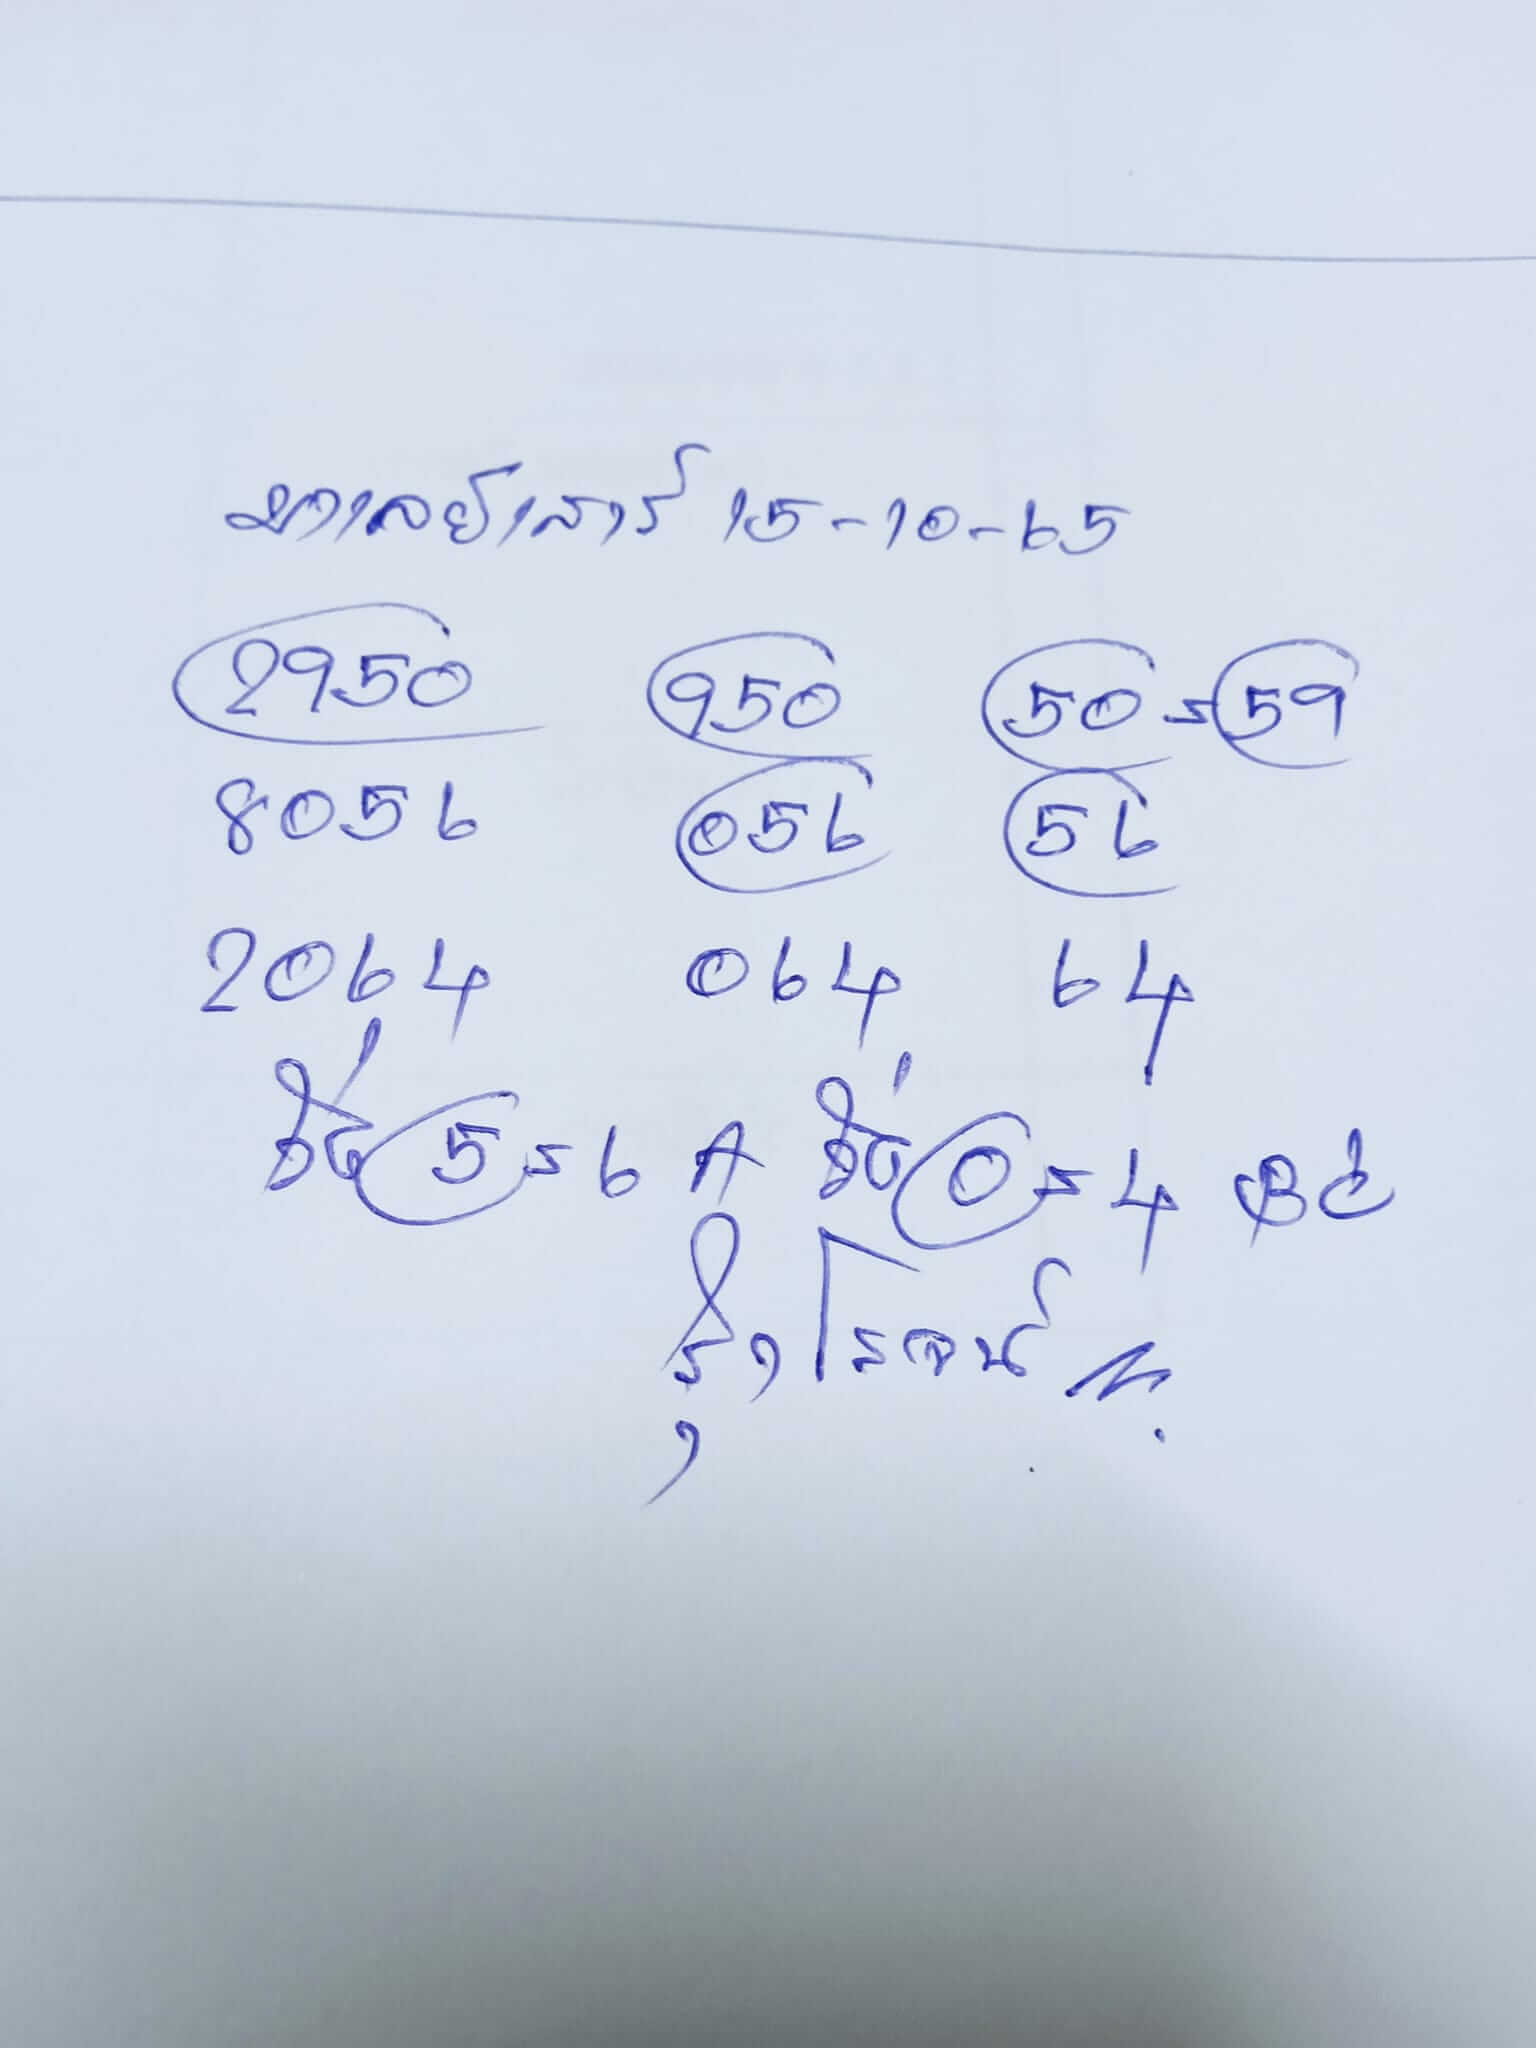 มาเลย์เสาร์ 15-10-65
2950 950 50-59
8056 056 56
2064 064 64
5 6 A 0 4 BC
โรจน์ N.